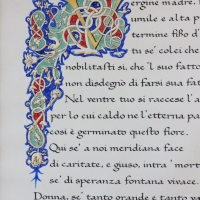 ergine madre,
umile e alta p
termine fisso d'
tu se' colei che
nobilitasti sì, che 'l suo fatto
non disdegnò di farsi sua fat
Nel ventre tuo si raccese l'a
per lo cui caldo ne l'etterna pa
così è germinato questo fiore.
Qui se' a noi meridiana face
di caritate, e giuso, intra 'mort
se' di speranza fontana vivace.
Donna, se' tanto grande e tanto va